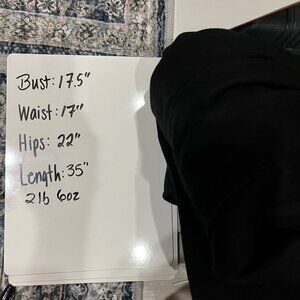 Bust: 17.5"
Waist: 17"
Hips: 22"
Length: 35"
2lb 6oz